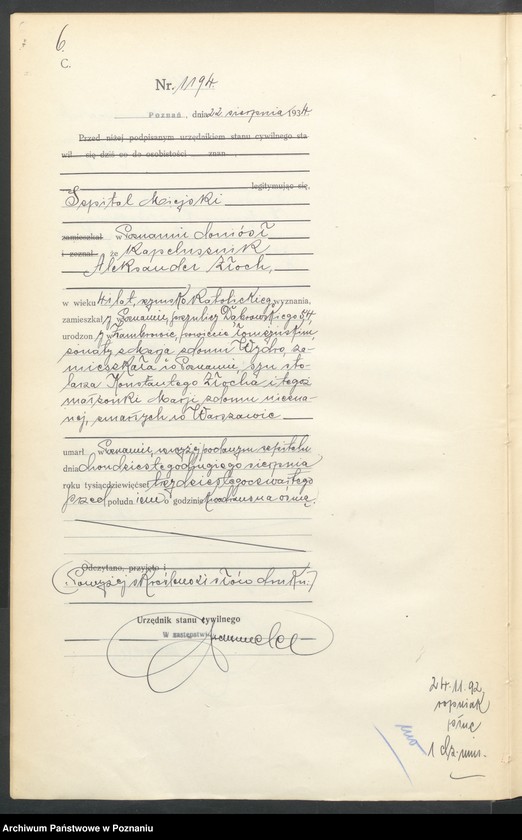 6.
C.
Nr. 1194.
Poznań, dnia 22 sierpnia 1934.
Przed niżej podpisanym urzędnikiem stanu cywilnego sta-
wił się dziś co do osobistości znan
legitymując się,
Szpital Miejski
zamieszkał w Poznaniu doniósł
i zeznał, że kapelusznik
Aleksander Złoch,
w wieku 41 lat, rzymsko katolickiego wyznania,
zamieszkały w Poznaniu, przy ulicy Dąbrowskiego 54
urodzony w Zambrowie, powiecie łomżyńskim,
żonaty z Marją z domu Wydro, za-
mieszkałą w Poznaniu, syn sto-
larza Konstantego Złocha i tegoż
małżonki Marji z domu niezna-
nej, zmarłych w Warszawie
umarł w Poznaniu, w wyżej podanym szpitalu
dnia dwudziestego drugiego sierpnia
roku tysiąc dziewięćset trzydziestego czwartego
przed południem o godzinie wpół do ósmej.
Odczytano, przyjęto i
(Powyżej skreślono słów druku.)
Urzędnik stanu cywilnego
W zastępstwie
24.11.92
ropniak
płuc
1 dz.
Archiwum Państwowe w Poznaniu